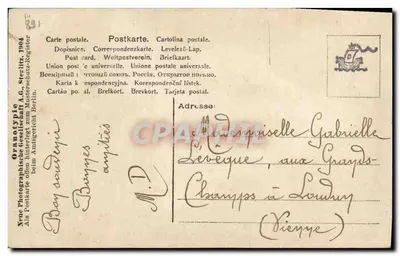 Carte postale. Postkarte. Cartolina postale.
Dopisnice. Correpondenzkarte. Levelező-Lap.
Post card. Weltpostverein. Briefkaart.
Union postale universelle. Unione postale universale.
Всемірный почтовый союзъ. Россія. Открытое письмо.
Karta korespondencyjna. Korespondenční lístek.
Cartão postal. Brefkort. Brevkort. Tarjeta postal.
Oranotypie
Neue Photographische Gesellschaft A.G., Steglitz. 1904
Als Postkarte offen hinterlegt zum Musterschutz-Register
beim Amtsgericht Berlin.
Adresse:
Bon souvenir
Bonnes
amitiés
M. D
Mademoiselle Gabrielle
Levêque, aux Grands-
Champs à Loudun
(Vienne)
CPA